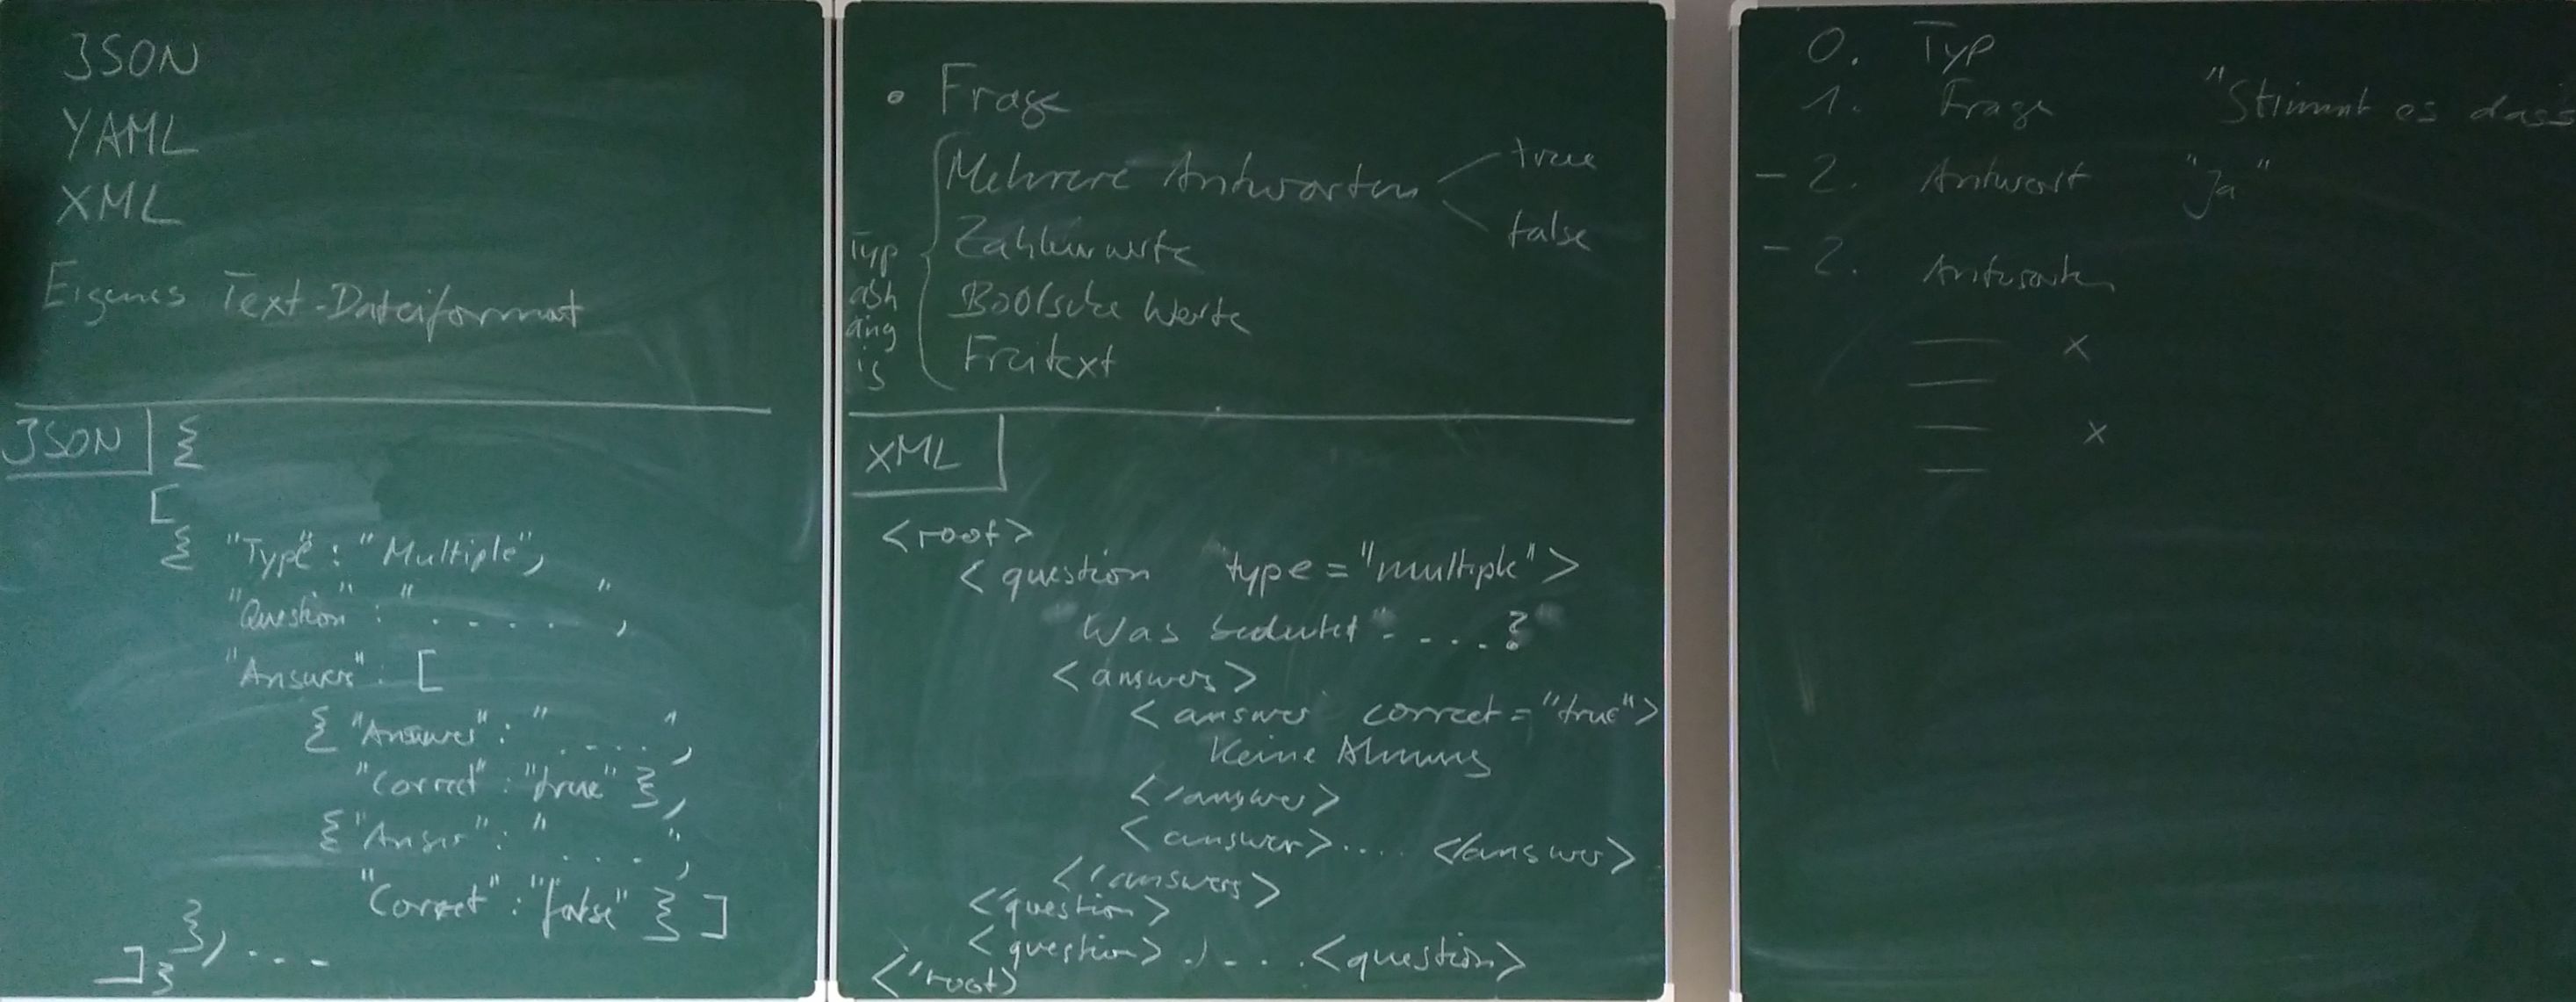 JSON
YAML
XML
Eigenes Text-Dateiformat
JSON {
[
{ "Type": "Multiple",
"Question": " . . . . ",
"Answers": [
{ "Answer": " . . . . ",
"Correct": "true" },
{ "Answer": " . . . . ",
"Correct": "false" } ]
}, . . .
] }
• Frage
Typ abhängig
Mehrere Antworten < true
false
Zahlenwerte
Boolsche Werte
Freitext
XML
<root>
<question type="multiple">
Was bedeutet " . . . . ?
<answers>
<answer correct="true">
Keine Ahnung
</answer>
<answer> . . . . </answer>
</answers>
</question>
<question> . / . . . <question>
</root>
0. Typ
1. Frage "Stimmt es dass
- 2. Antwort "Ja"
- 2. Antworten
x
x